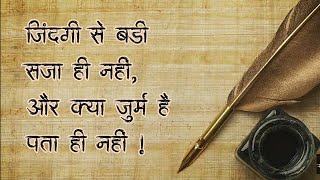 जिंदगी से बडी
सजा ही नही,
और क्या जुर्म है
पता ही नही !